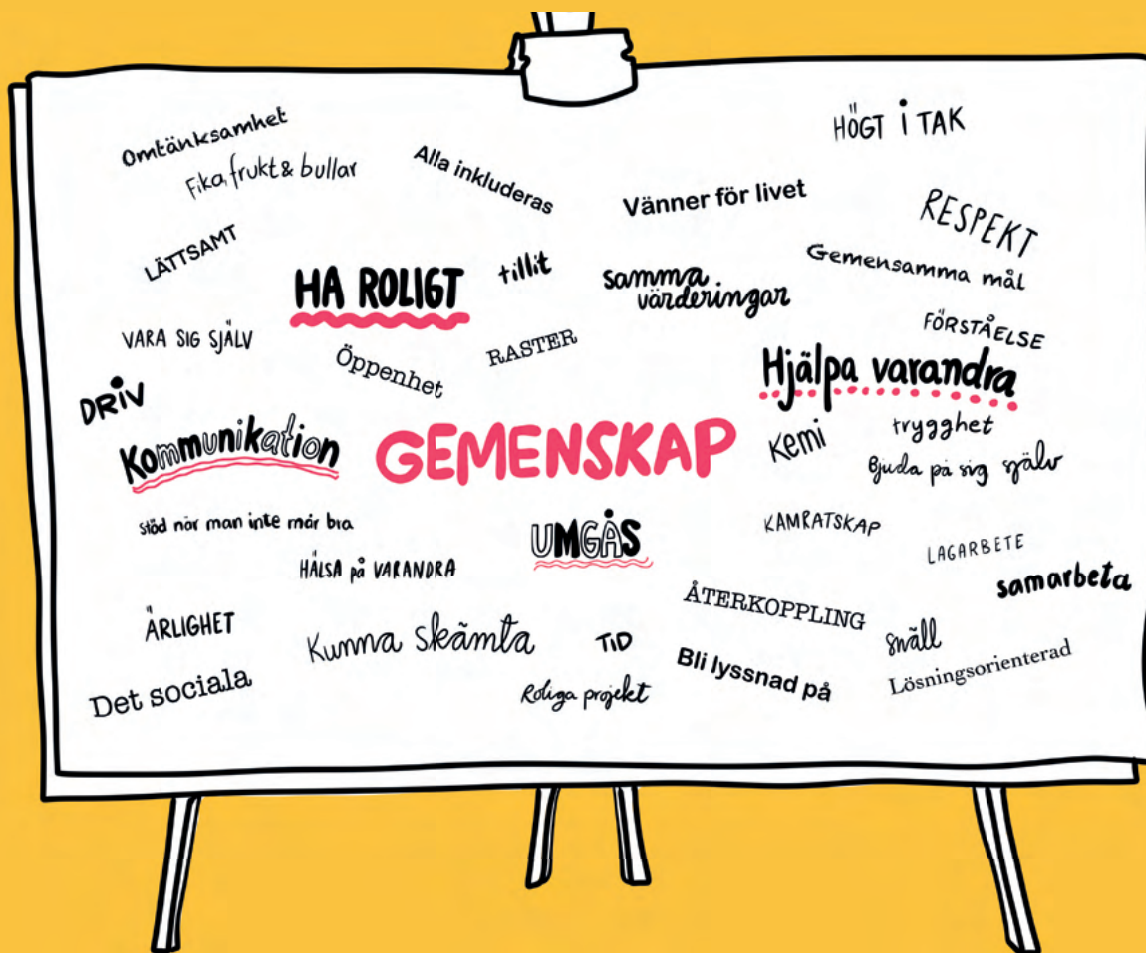 Omtänksamhet
HÖGT i TAK
Fika, frukt & bullar
Alla inkluderas
Vänner för livet
RESPEKT
LÄTTSAMT
HA ROLIGT
tillit
samma
värderingar
Gemensamma mål
VARA SIG SJÄLV
Öppenhet
RASTER
FÖRSTÅELSE
Hjälpa varandra
DRiV
Kommunikation
GEMENSKAP
Kemi
trygghet
Bjuda på sig själv
stöd när man inte mår bra
UMGÅS
KAMRATSKAP
LAGARBETE
HÄLSA på VARANDRA
samarbeta
ÄRLIGHET
Kunna skämta
TiD
ÅTERKOPPLING
snäll
Det sociala
Roliga projekt
Bli lyssnad på
Lösningsorienterad